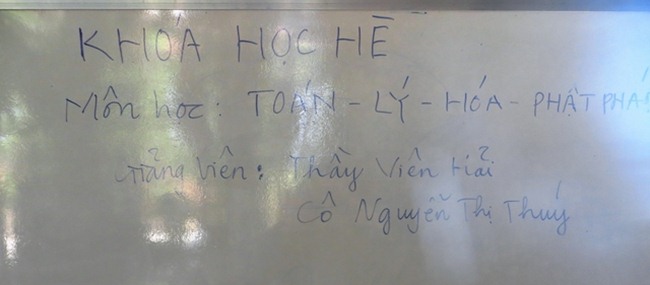 KHOÁ HỌC HÈ
Môn học: TOÁN - LÝ - HÓA - PHẬT PHÁP
Giảng Viên: Thầy Viên Hải
Cô Nguyễn Thị Thuý